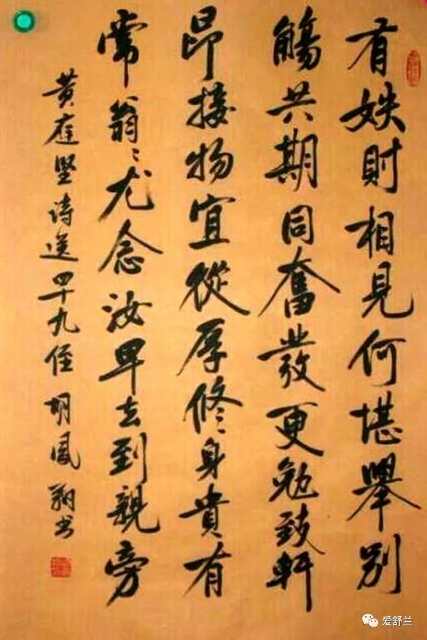 有妷財相見何堪舉別
觴共期同奮發更勉致軒
昂接物宜從厚修身貴有
常翁〻尤念汝早去到親旁
黄庭坚诗送四十九侄 胡鳳翔书
爱舒兰